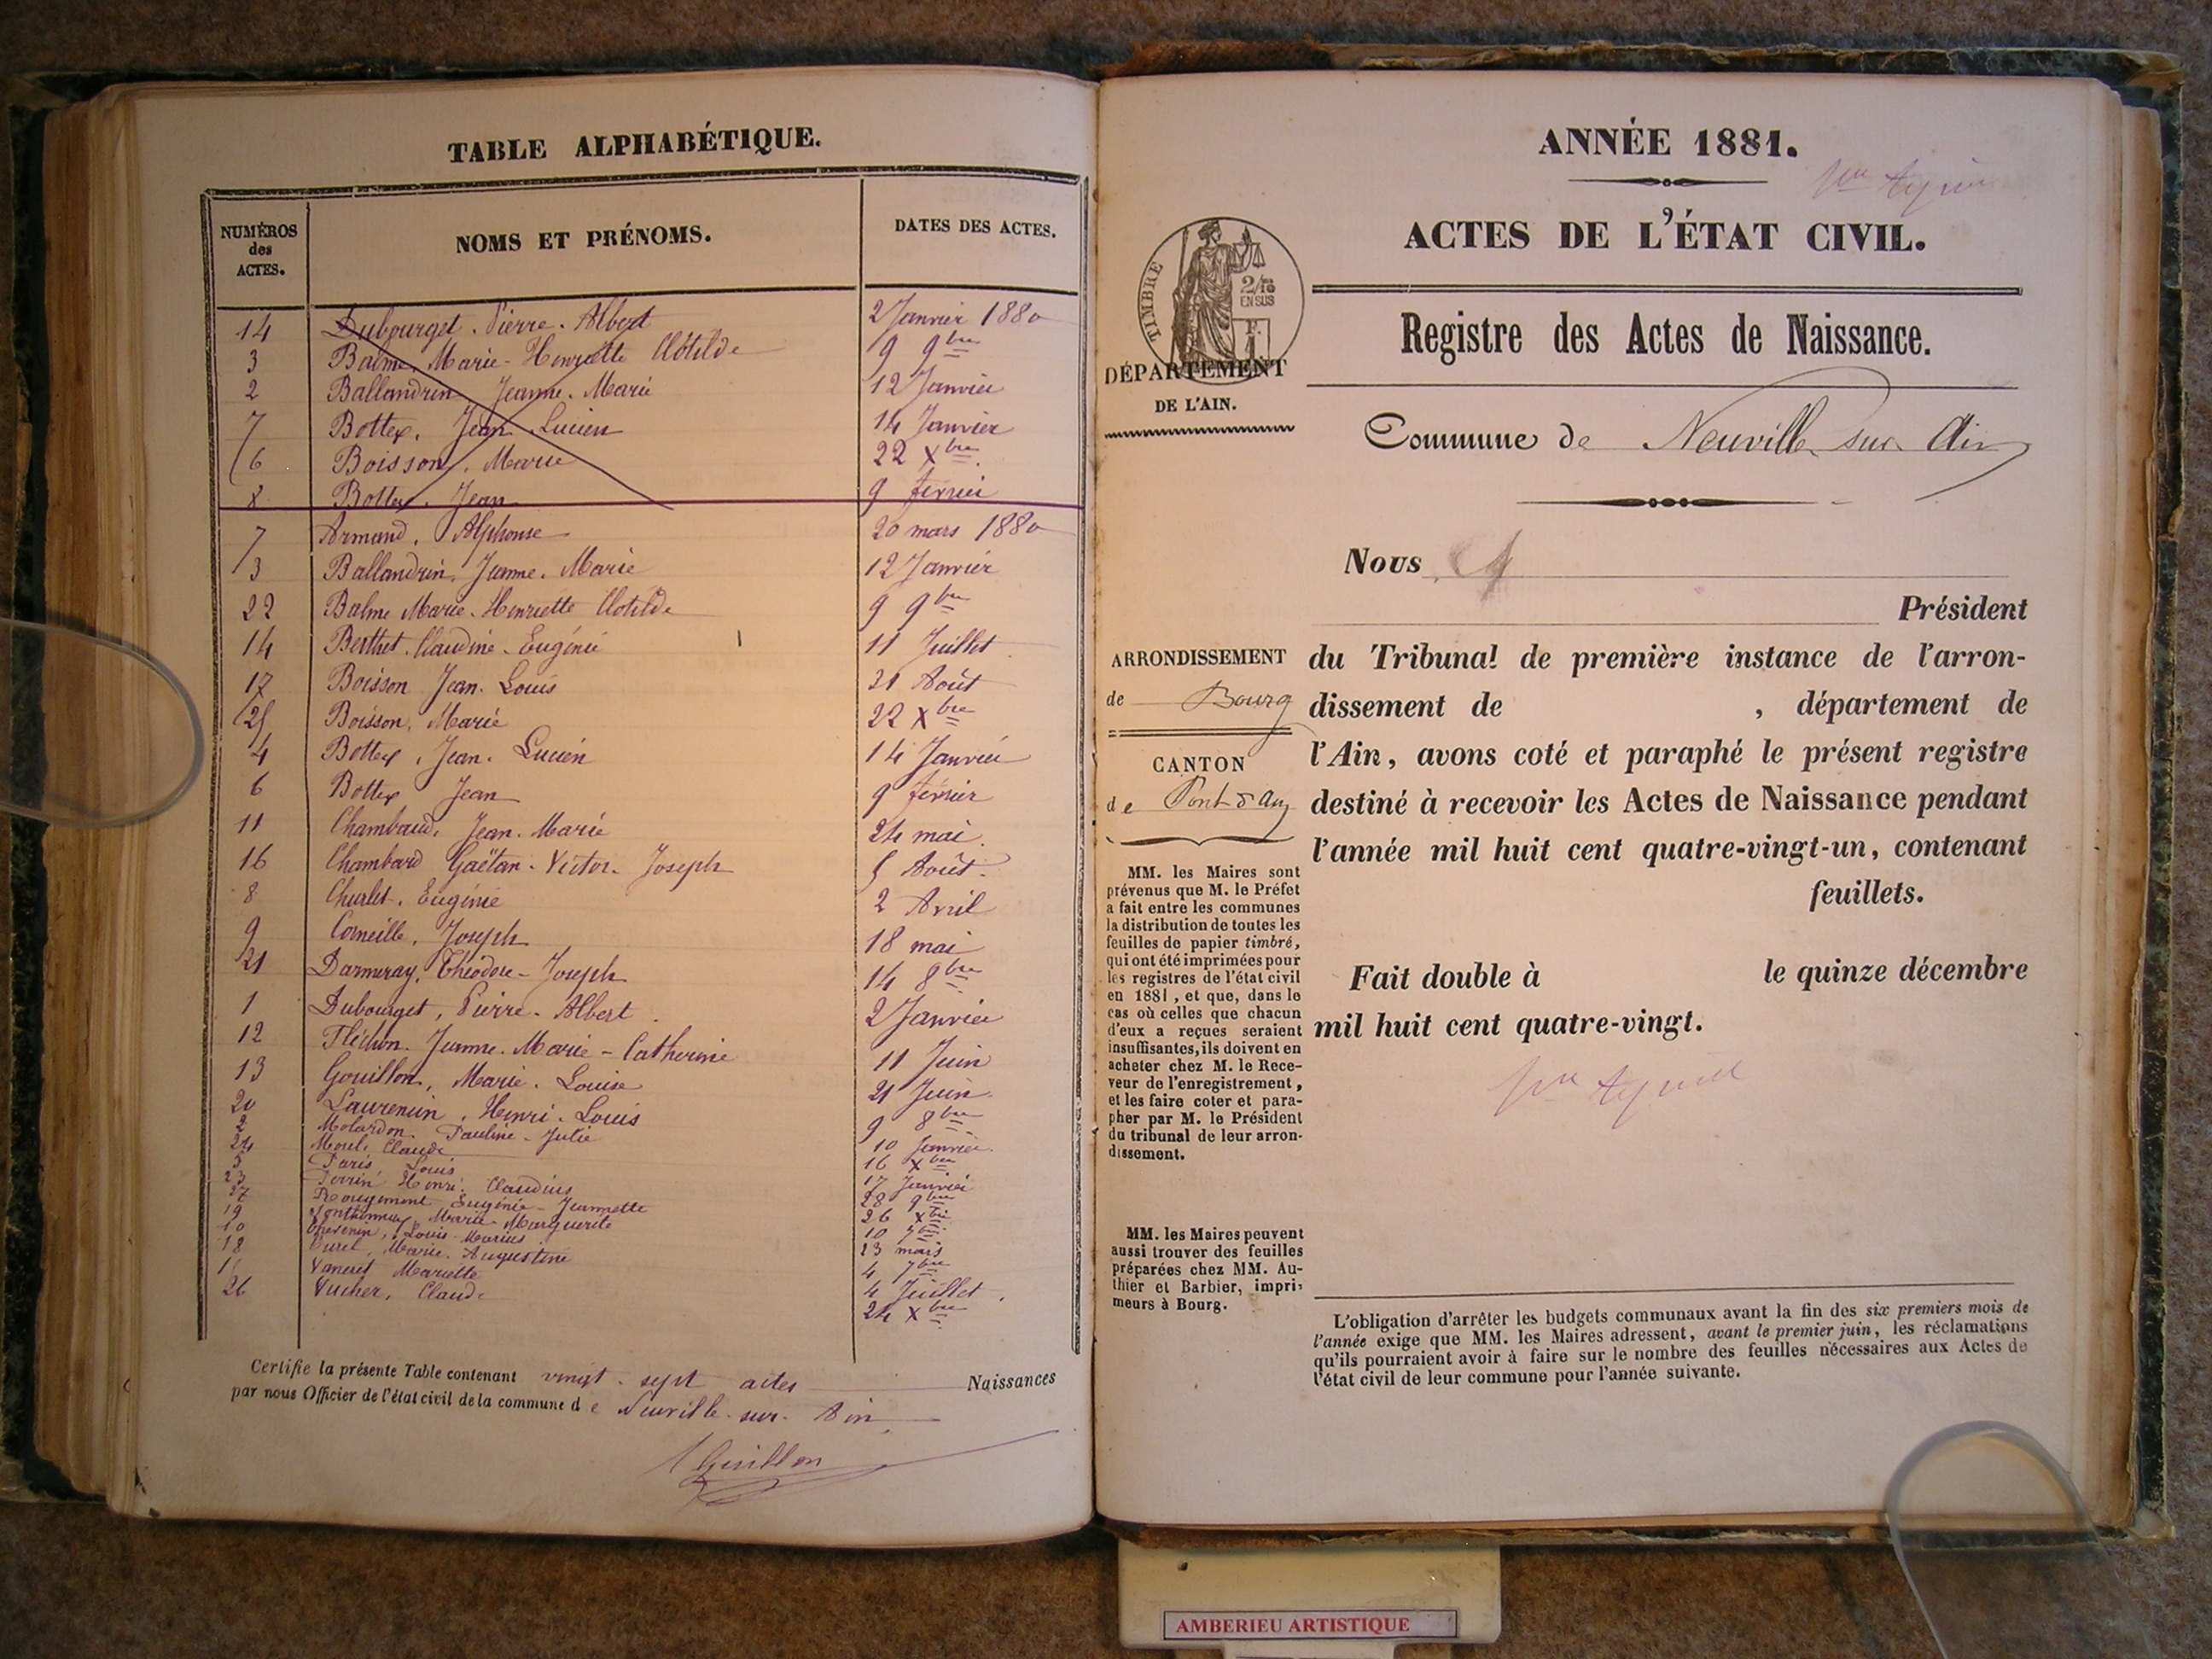 TABLE ALPHABÉTIQUE.
NUMÉROS des ACTES.
NOMS ET PRÉNOMS.
DATES DES ACTES.
14 Dubourget. Pierre. Albert 2 Janvier 1880
3 Balme, Marie-Henriette Clotilde 9 9bre
2 Ballandrin Jeanne. Marie 12 Janvier
7 Bottex, Jean. Lucien 14 Janvier
6 Boisson, Marie 22 Xbre
8 Bottex, Jean 9 février
7 Armand, Alphonse 20 mars 1880
3 Ballandrin, Jeanne. Marie 12 Janvier
22 Balme Marie-Henriette Clotilde 9 9bre
14 Berthet. Claudine-Eugénie 11 Juillet
17 Boisson Jean. Louis 21 Août
25 Boisson, Marie 22 Xbre
4 Bottex, Jean. Lucien 14 Janvier
6 Bottex Jean 9 février
11 Chambaud, Jean. Marie 24 mai.
16 Chambard Gaëtan-Victor-Joseph 5 Août.
8 Churlet. Eugénie 2 Avril
9 Corneille, Joseph 18 mai
21 Darmeray, Théodore-Joseph 14 8bre
1 Dubourget, Pierre-Albert 2 Janvier
12 Fléchon. Jeanne. Marie-Catherine 11 Juin
13 Gouillon, Marie. Louise 21 Juin
20 Laurencin, Henri. Louis 9 8bre
2 Molardon Pauline-Julie 10 Janvier
24 Morel, Claude 16 Xbre
5 Paris, Louis 17 Janvier
23 Perrin Henri. Claudius 28 9bre
27 Rougemont Eugénie-Jeannette 26 Xbre
19 Marie Marguerite 10 7bre
10 Thévenin, Louis-Marius 23 mars
18 Marie. Augustine 4 7bre
Mariette 4 Juillet.
26 Vucher, Claude 24 Xbre
Certifie la présente Table contenant vingt-sept actes Naissances
par nous Officier de l'état civil de la commune de Neuville-sur-Ain
Guillon
ANNÉE 1881.
ACTES DE L'ÉTAT CIVIL.
TIMBRE
2/10
EN SUS
Registre des Actes de Naissance.
DÉPARTEMENT
DE L'AIN.
Commune de Neuville sur Ain
Nous
Président
ARRONDISSEMENT
de Bourg
CANTON
de Pont d'Ain
du Tribunal de première instance de l'arron-
dissement de , département de
l'Ain, avons coté et paraphé le présent registre
destiné à recevoir les Actes de Naissance pendant
l'année mil huit cent quatre-vingt-un, contenant
feuillets.
Fait double à le quinze décembre
mil huit cent quatre-vingt.
MM. les Maires sont
prévenus que M. le Préfet
a fait entre les communes
la distribution de toutes les
feuilles de papier timbré,
qui ont été imprimées pour
les registres de l'état civil
en 1881, et que, dans le
cas où celles que chacun
d'eux a reçues seraient
insuffisantes, ils doivent en
acheter chez M. le Rece-
veur de l'enregistrement,
et les faire coter et para-
pher par M. le Président
du tribunal de leur arron-
dissement.
MM. les Maires peuvent
aussi trouver des feuilles
préparées chez MM. Au-
thier et Barbier, impri-
meurs à Bourg.
L'obligation d'arrêter les budgets communaux avant la fin des six premiers mois de
l'année exige que MM. les Maires adressent, avant le premier juin, les réclamations
qu'ils pourraient avoir à faire sur le nombre des feuilles nécessaires aux Actes de
l'état civil de leur commune pour l'année suivante.
AMBERIEU ARTISTIQUE